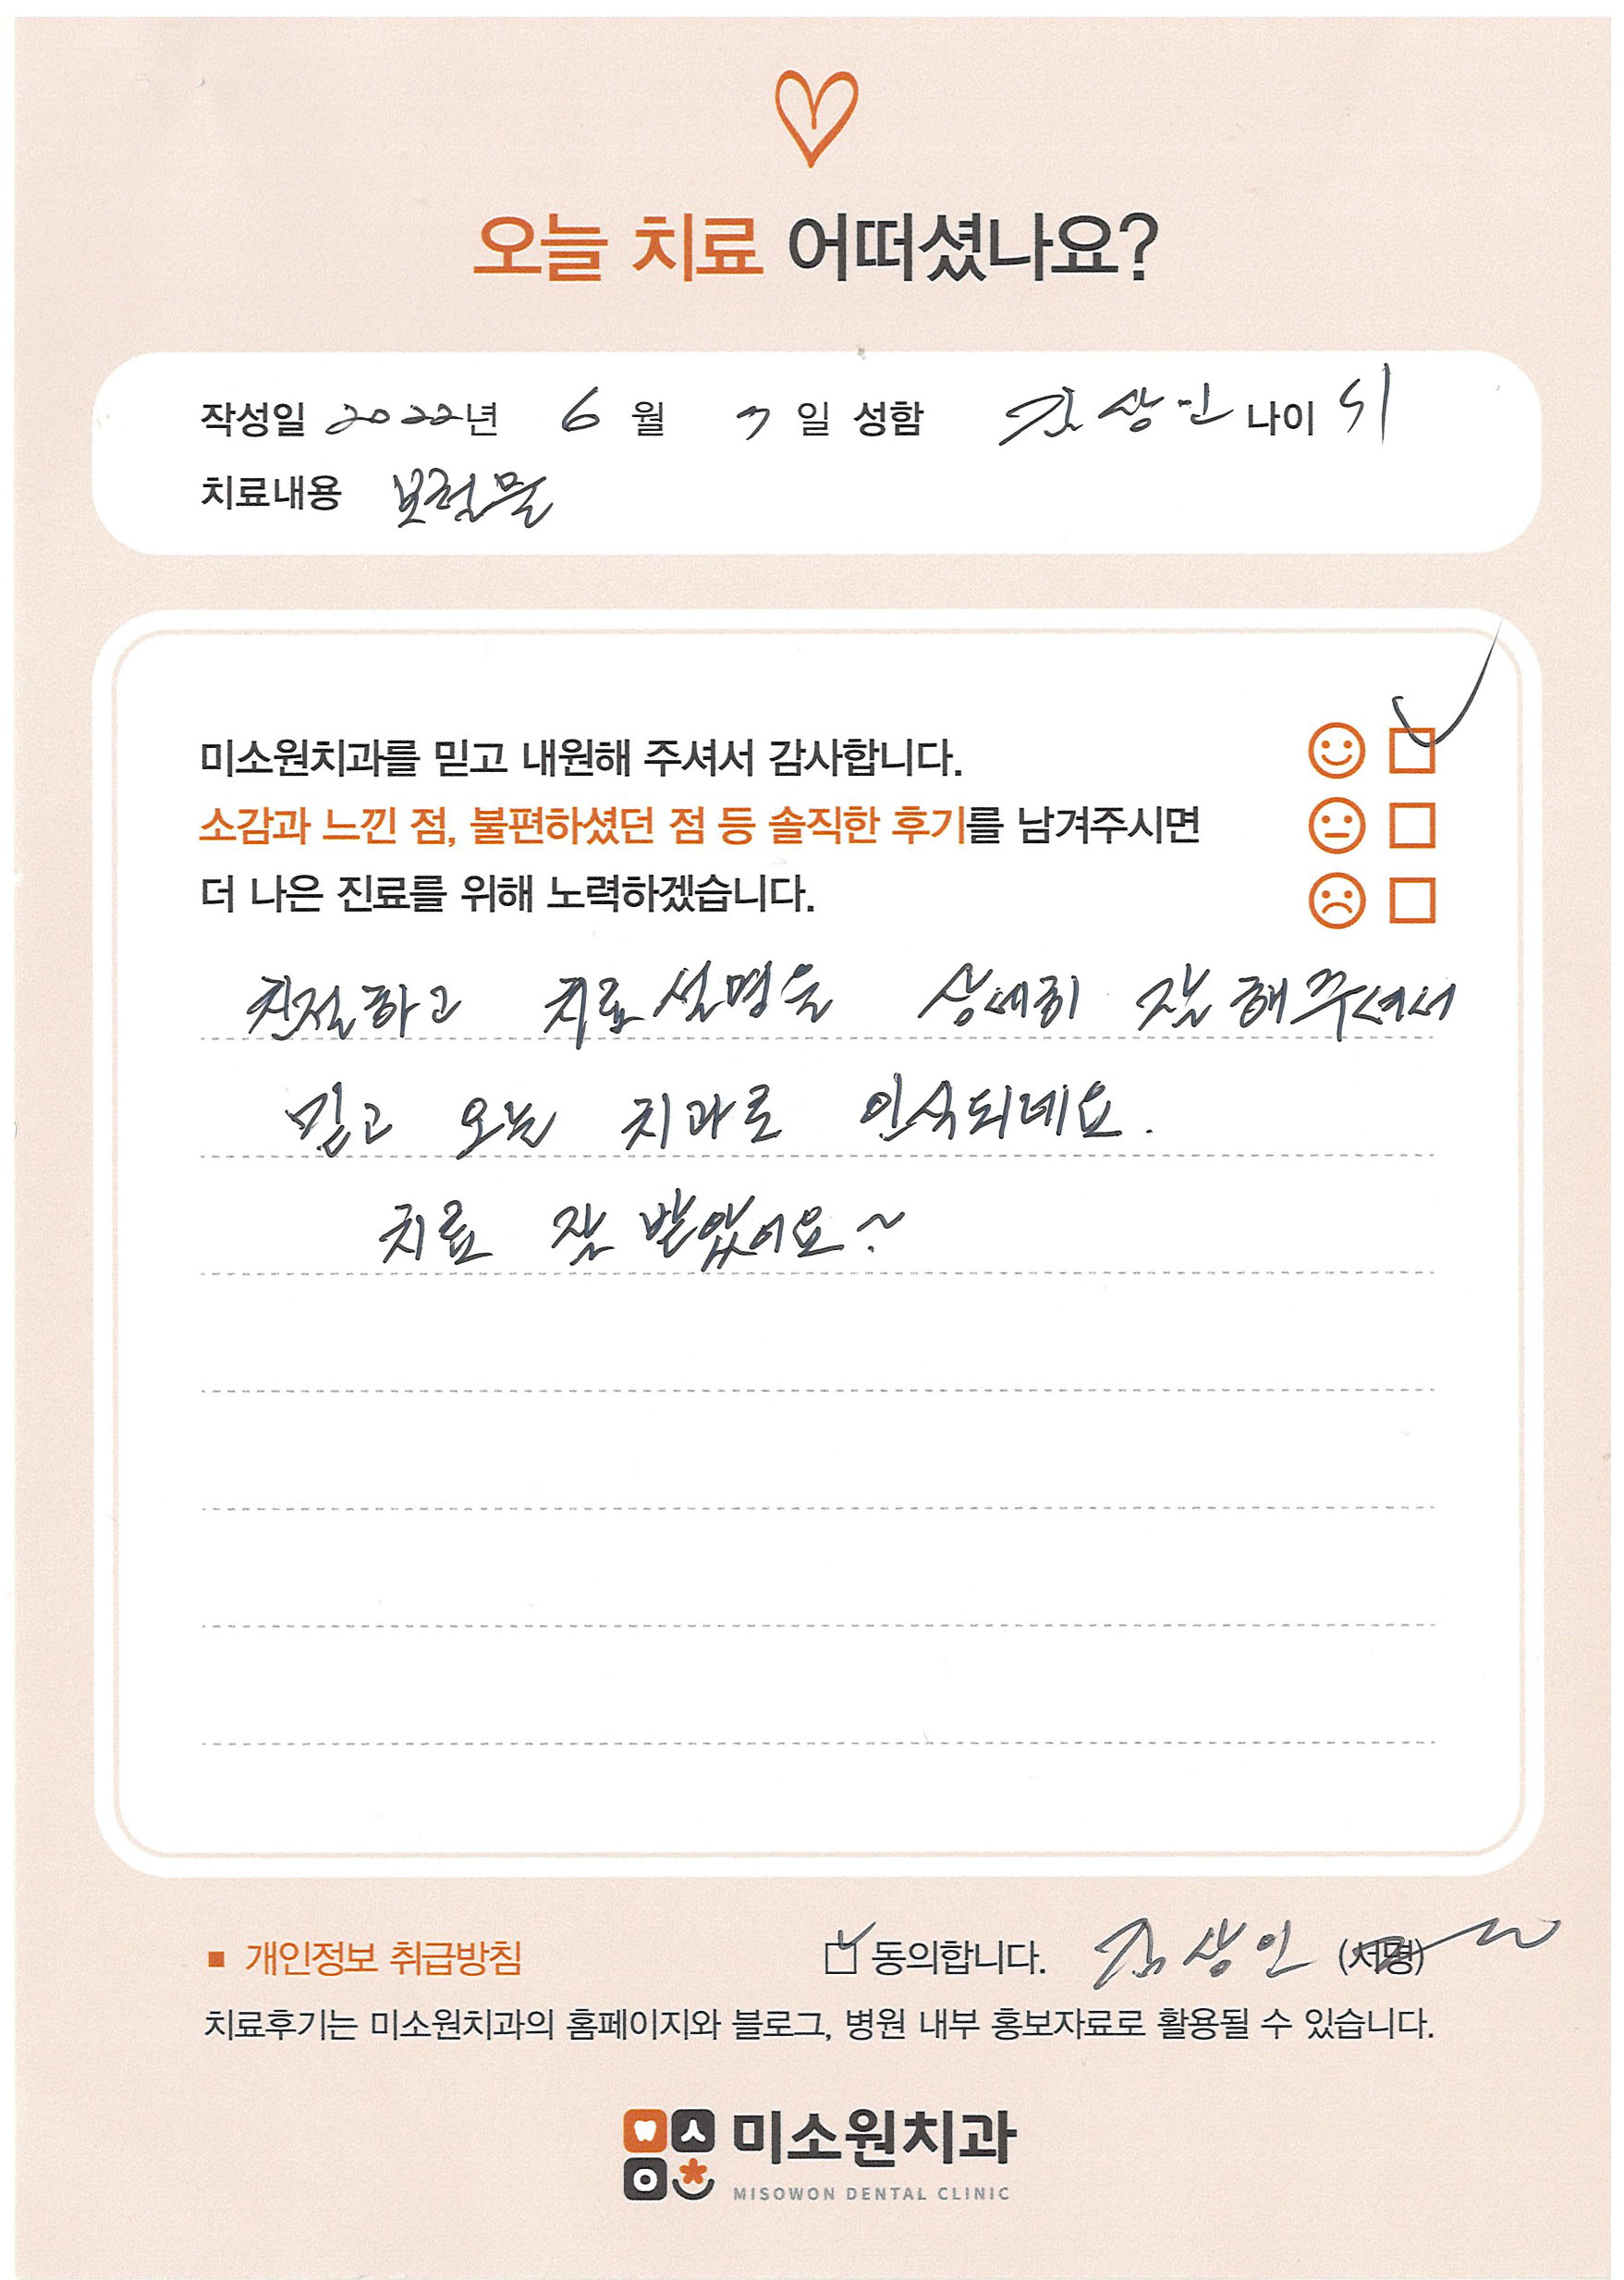 오늘 치료 어떠셨나요?
작성일 2022년 6월 7일 성함 김상인 나이 51
치료내용 보철물
미소원치과를 믿고 내원해 주셔서 감사합니다.
소감과 느낀 점, 불편하셨던 점 등 솔직한 후기를 남겨주시면
더 나은 진료를 위해 노력하겠습니다.
친절하고 치료설명을 상세히 잘 해주셔서
믿고 오는 치과로 인식되네요.
치료 잘 받았어요~
■ 개인정보 취급방침 동의합니다. 김상인 (서명)
치료후기는 미소원치과의 홈페이지와 블로그, 병원 내부 홍보자료로 활용될 수 있습니다.
미소원치과
MISOWON DENTAL CLINIC